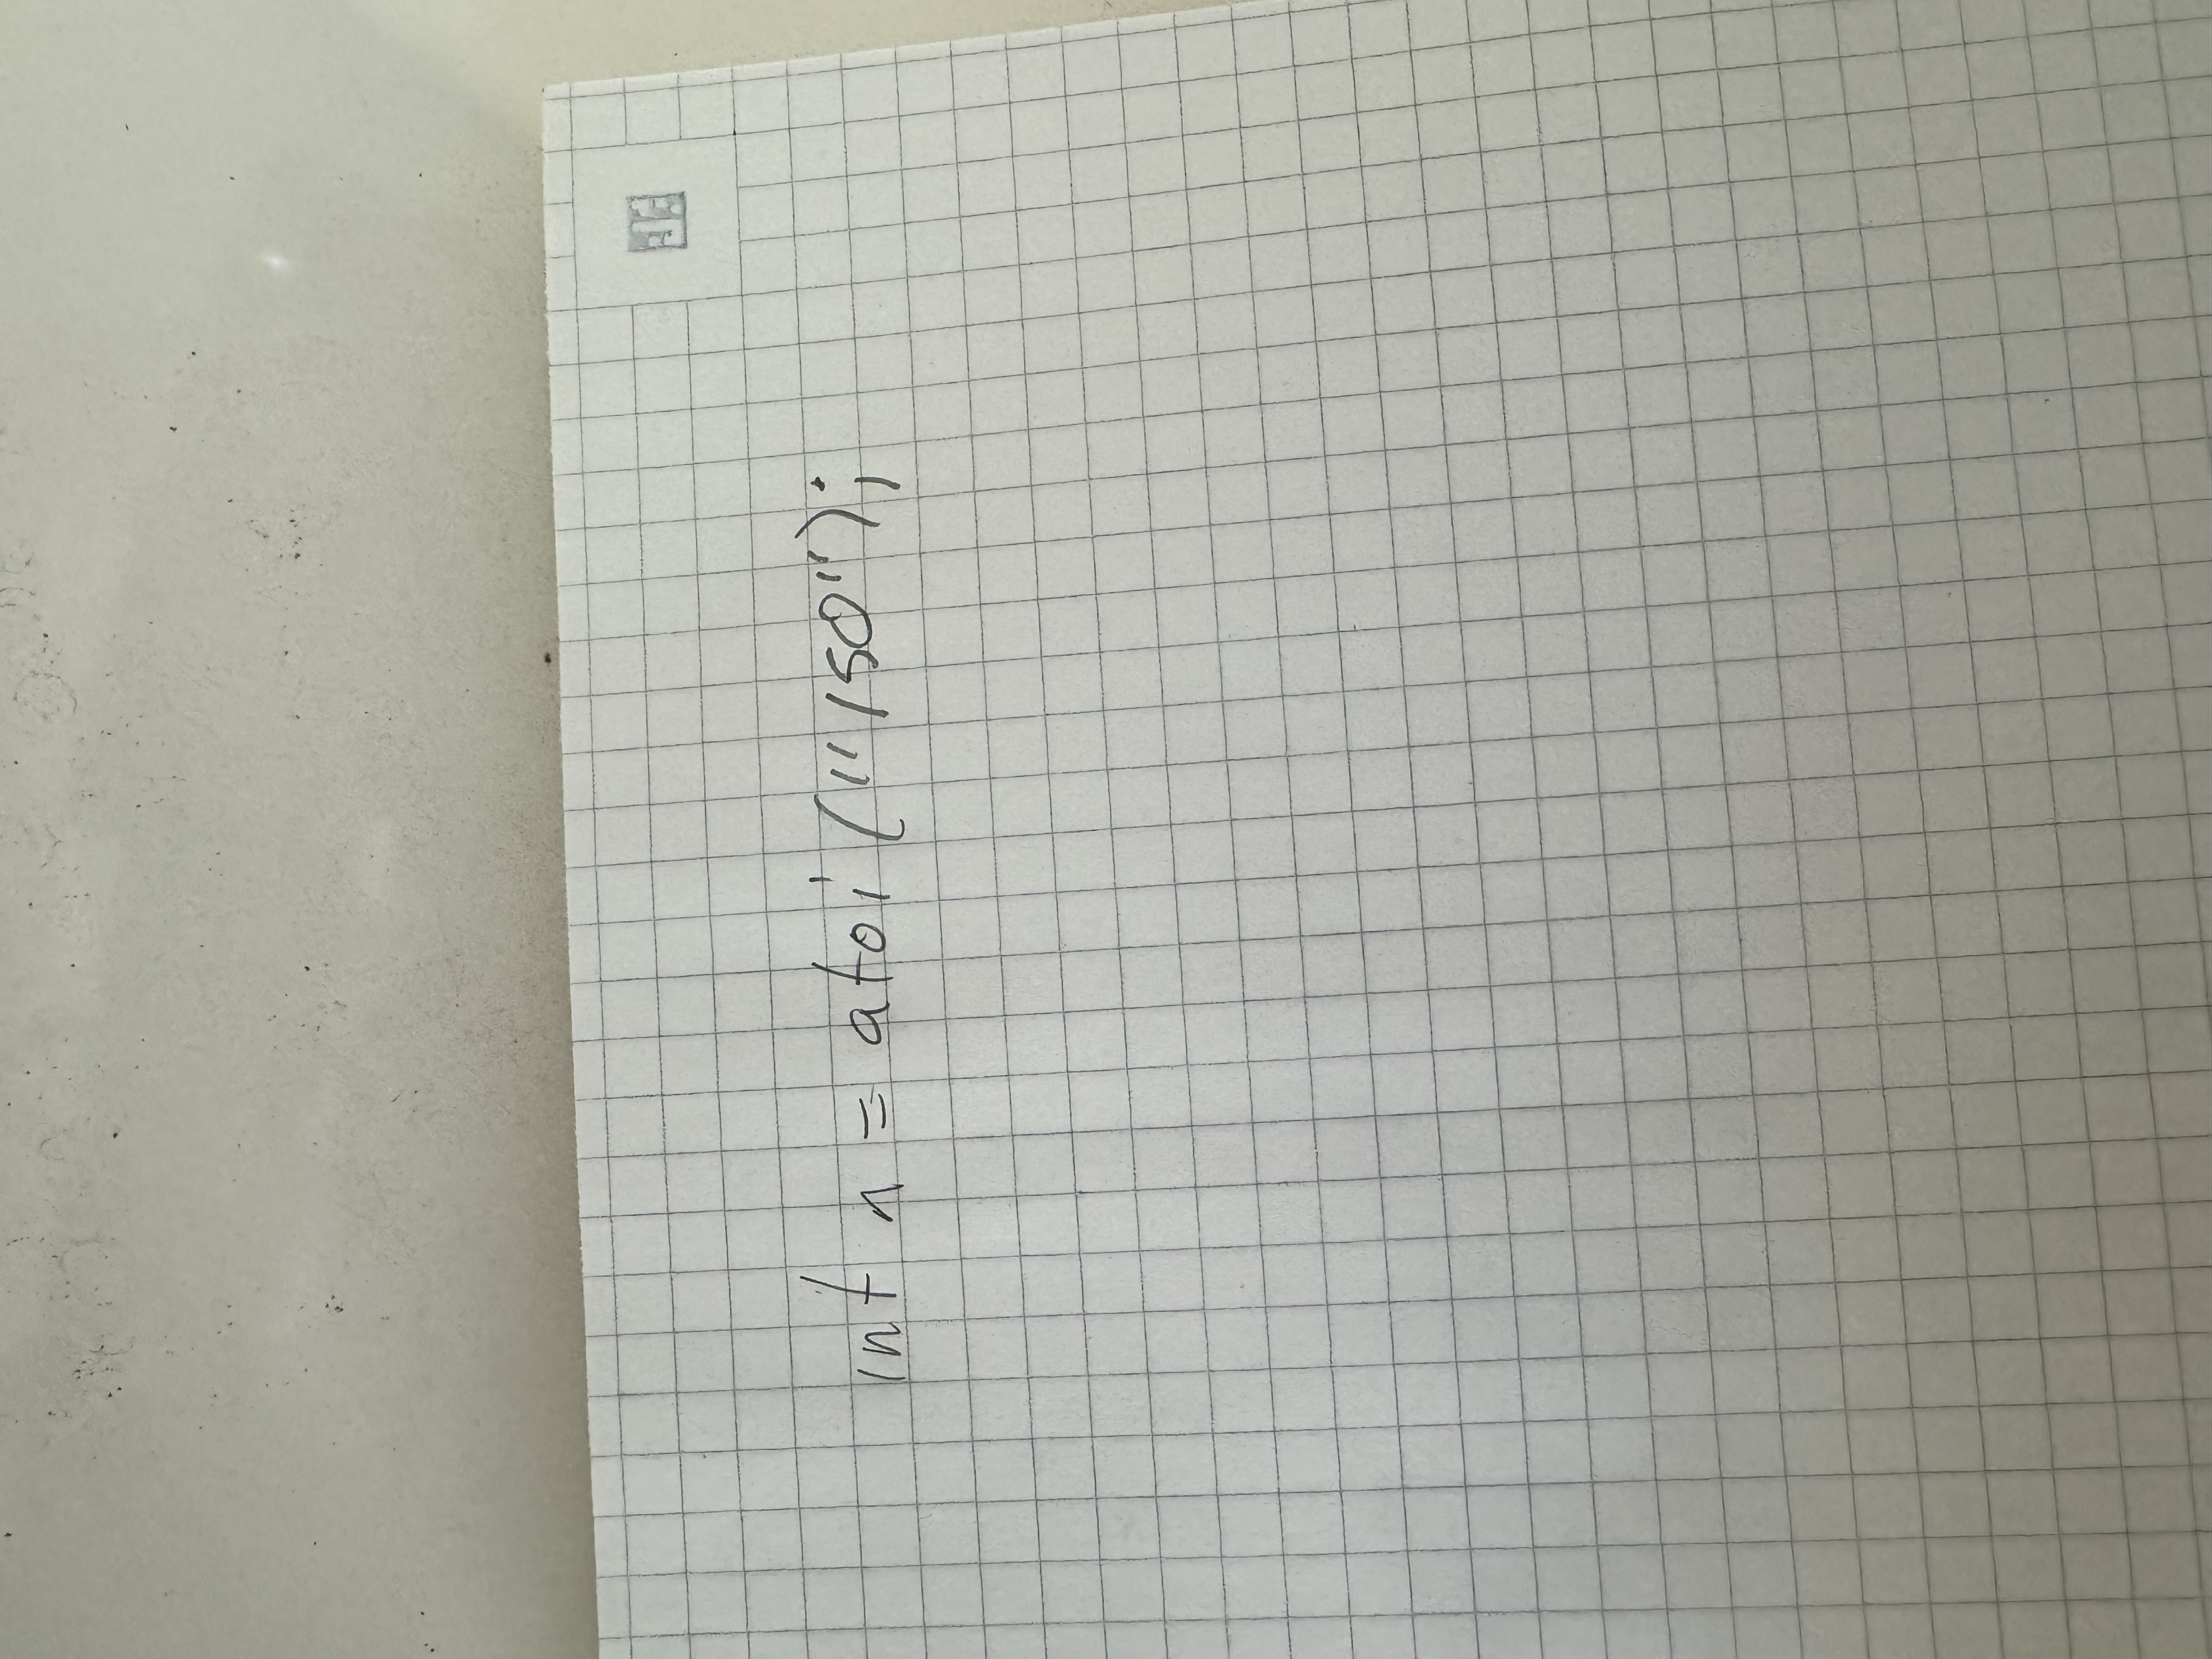 int n = atoi ("150");